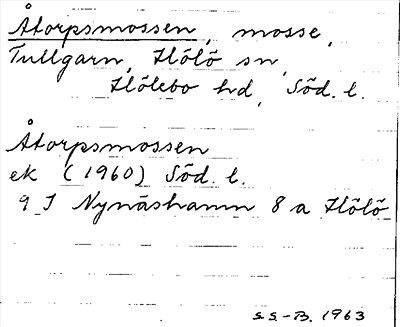 Åtorpsmossen, mosse,
Tullgarn, Hölö sn,
Hölebo hd, Söd. l.
Åtorpsmossen
ek (1960) Söd. l.
9 I Nynäshamn 8 a Hölö
S.S.-B. 1963